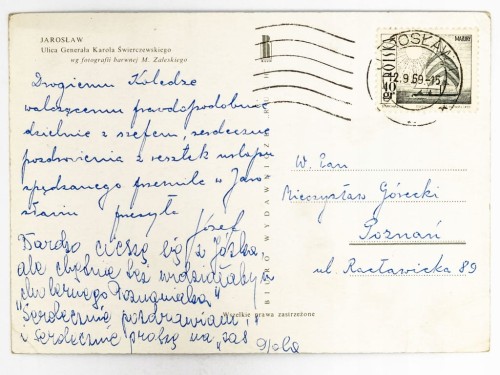 JAROSŁAW
Ulica Generała Karola Świerczewskiego
wg fotografii barwnej M. Zaleskiego
Drogiemu Koledze
walczącemu prawdopodobnie
dzielnie z szefem, serdeczne
pozdrowienia z resztek urlopu
spędzanego w Jaro-
sławiu przesyła
Józef
Bardzo cieszę się z Józka,
ale chętnie bez
"Serdecznie pozdrawiam"
i serdecznie proszę na
BIURO WYDAWNICZE
Wszelkie prawa zastrzeżone
POLSKA
JAROSŁAW
2.9.69-15
W. Pan
Mieczysław Górecki
Poznań
ul. Racławicka 89